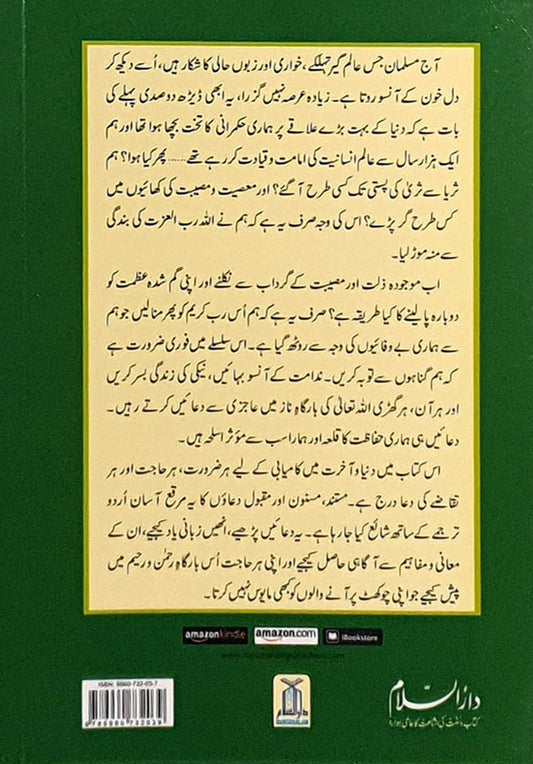 آج مسلمان جس عالم گیر تہلکے، خواری اور زبوں حالی کا شکار ہیں، اُسے دیکھ کر
دل خون کے آنسو روتا ہے۔ زیادہ عرصہ نہیں گزرا، یہ ابھی ڈیڑھ دو صدی پہلے کی
بات ہے کہ دنیا کے بہت بڑے علاقے پر ہماری حکمرانی کا تخت بچھا ہوا تھا اور ہم
ایک ہزار سال سے عالم انسانیت کی امامت و قیادت کر رہے تھے...... پھر کیا ہوا؟ ہم
ثریا سے ثریٰ کی پستی تک کسی طرح آ گئے؟ اور معصیت و مصیبت کی کھائیوں میں
کس طرح گر پڑے؟ اس کی وجہ صرف یہ ہے کہ ہم نے اللہ رب العزت کی بندگی
سے منہ موڑ لیا۔
اب موجودہ ذلت اور مصیبت کے گرداب سے نکلنے اور اپنی گم شدہ عظمت کو
دوبارہ پا لینے کا کیا طریقہ ہے؟ صرف یہ ہے کہ ہم اُس رب کریم کو پھر منا لیں جو ہم
سے ہماری بے وفائیوں کی وجہ سے روٹھ گیا ہے۔ اس سلسلے میں فوری ضرورت ہے
کہ ہم گناہوں سے توبہ کریں۔ ندامت کے آنسو بہائیں، نیکی کی زندگی بسر کریں
اور ہر آن، ہر گھڑی اللہ تعالیٰ کی بارگاہِ ناز میں عاجزی سے دعائیں کرتے رہیں۔
دعائیں ہی ہماری حفاظت کا قلعہ اور ہمارا سب سے مؤثر اسلحہ ہیں۔
اس کتاب میں دنیا و آخرت میں کامیابی کے لیے ہر ضرورت، ہر حاجت اور ہر
تقاضے کی دعا درج ہے۔ مستند، مسنون اور مقبول دعاؤں کا یہ مرقع آسان اُردو
ترجمے کے ساتھ شائع کیا جا رہا ہے۔ یہ دعائیں پڑھیے، انھیں زبانی یاد کیجیے، ان کے
معانی و مفاہیم سے آگاہی حاصل کیجیے اور اپنی ہر حاجت اُس بارگاہِ رحمٰن و رحیم میں
پیش کیجیے جو اپنی چوکھٹ پر آنے والوں کو کبھی مایوس نہیں کرتا۔
amazonkindle amazon.com iBookstore
ISBN: 9960-732-03-7
9789960732039
دارالسلام
کتاب و سنت کی اشاعت کا عالمی ادارہ